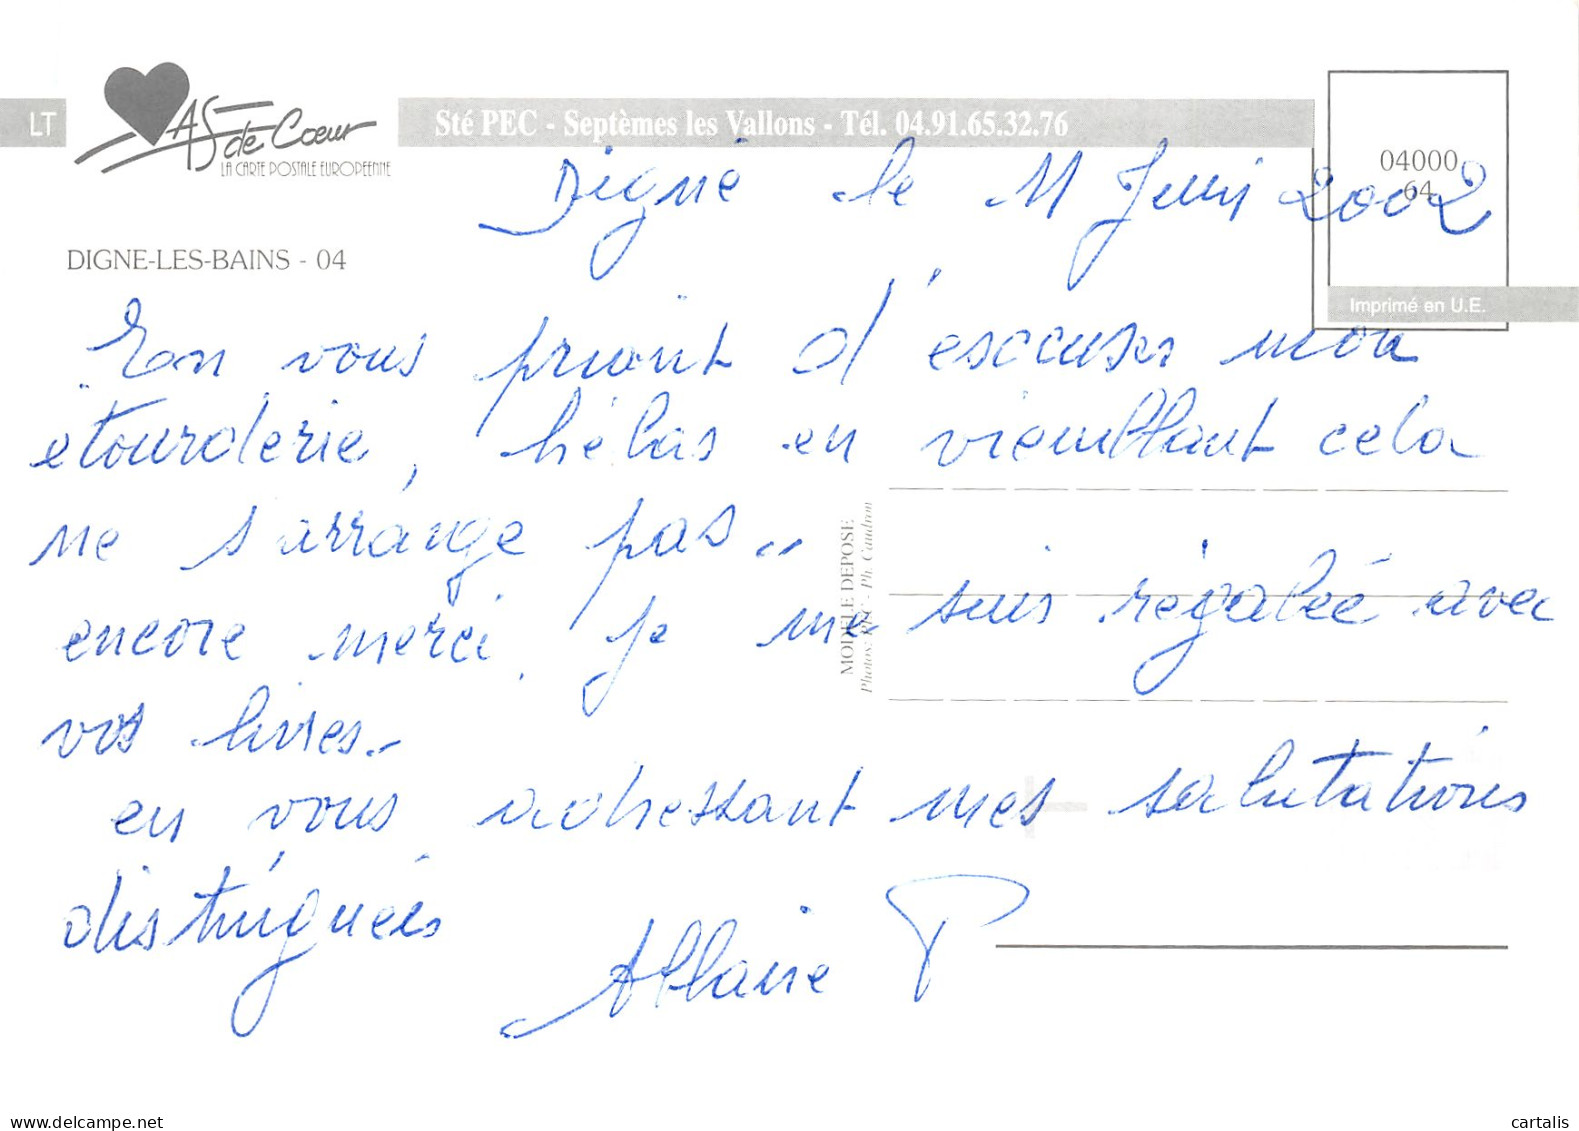 LT
AS de Cœur
LA CARTE POSTALE EUROPEENNE
Sté PEC - Septèmes les Vallons - Tél. 04.91.65.32.76
04000
64
Digne le 11 Juin 2002
DIGNE-LES-BAINS - 04
Imprimé en U.E.
En vous priant d'escuser mon
etourderie, hélas en vieillant cela
ne s'arrange pas..
encore merci. Je me suis régalée avec
vos livres..
en vous adressant mes salutations
distinguées
P
MODELE DEPOSE
Photos: PEC - Ph. Caudron
www.delcampe.net
cartalis